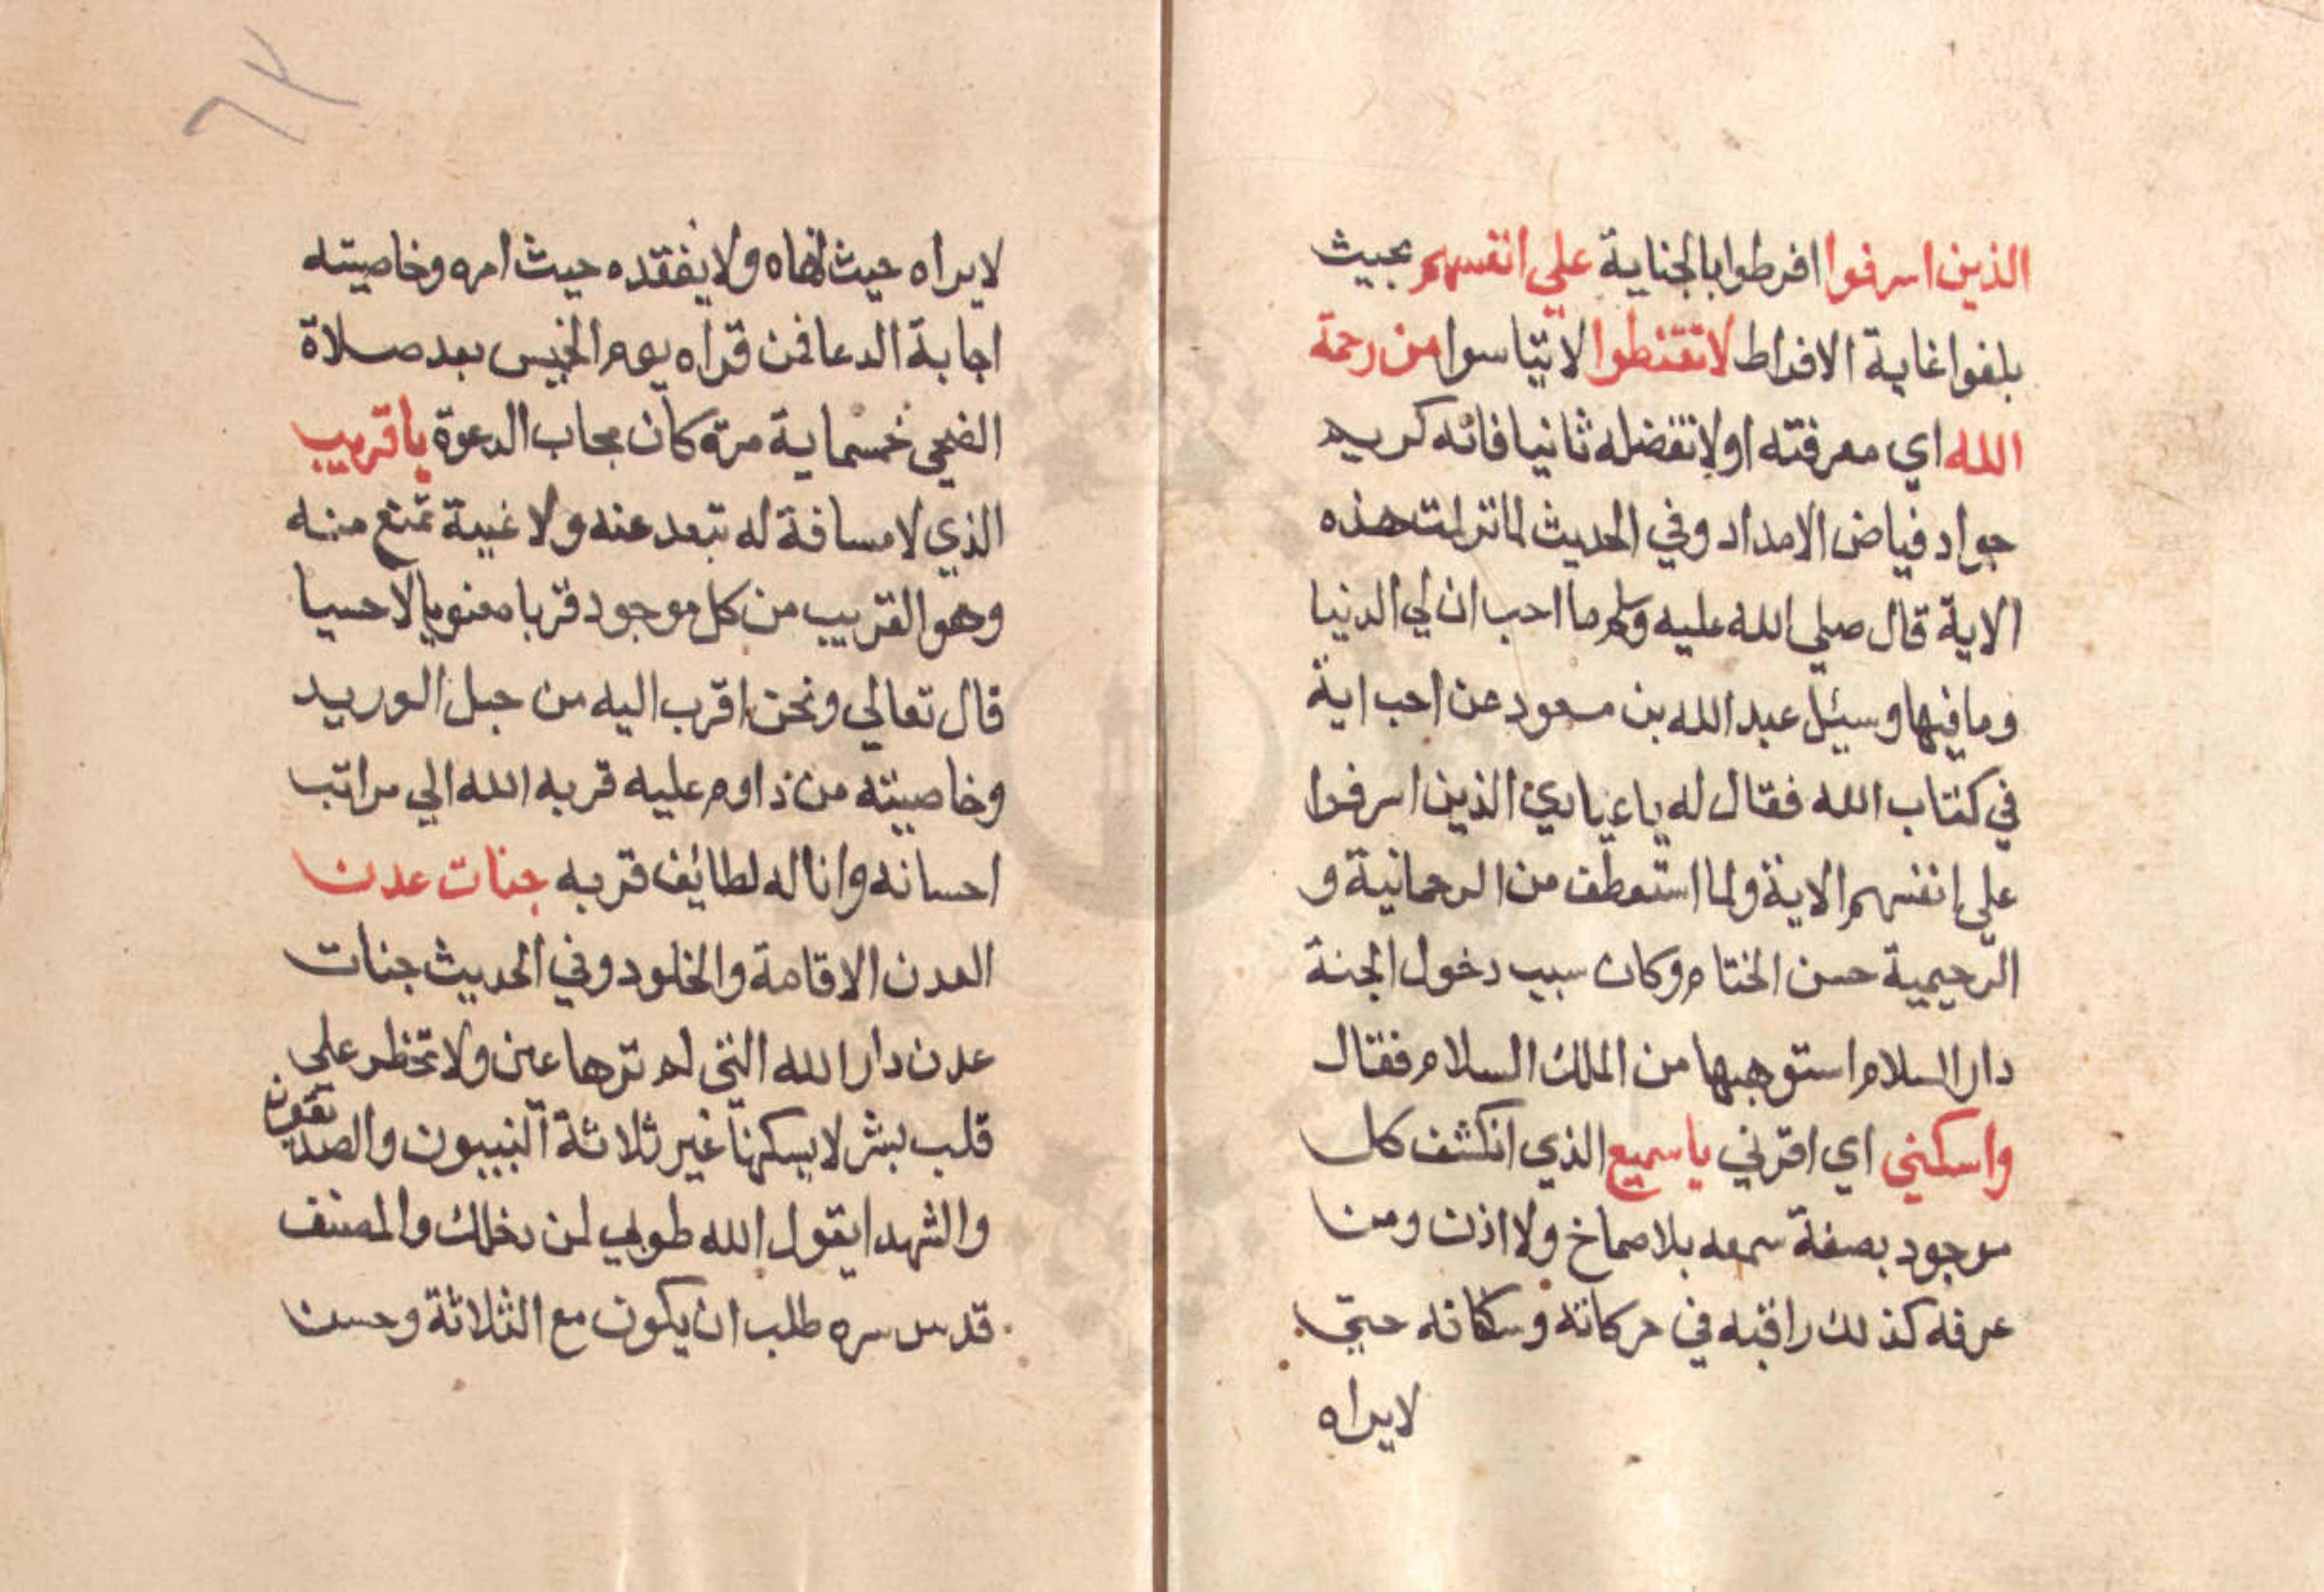 الذين اسرفوا افرطوا بالجناية علي انفسهم بحيث
بلغوا غاية الافراط لا تقنطوا لا تيأسوا من رحمة
الله اي معرفته اولا تفضله ثانيا فانه كريم
جواد فياض الامداد وفي الحديث لما نزلت هذه
الاية قال صلي الله عليه وسلم ما احب ان لي الدنيا
وما فيها وسيئل عبد الله بن مسعود عن احب اية
في كتاب الله فقال له يا عبادي الذين اسرفوا
علي انفسهم الاية ولما استعطف من الرحمانية و
الرحيمية حسن الختام وكان سبب دخول الجنة
دار السلام استوهبها من الملك السلام فقال
واسكني اي اقرني يا سميع الذي انكشف كل
موجود بصفة سمعه بلا صماخ ولا اذن ومن
عرفه كذلك راقبه في حركاته وسكاته حتي
لا يراه
٦٣
لا يراه حيث نهاه ولا يفقده حيث امره وخاصيته
اجابة الدعا فمن قراه يوم الخميس بعد صلاة
الضحى خمسماية مرة كان مجاب الدعوة يا قريب
الذي لا مسافة له تبعد عنه ولا غيبة تمنع منه
وهو القريب من كل موجود قربا معنويا لا حسيا
قال تعالي ونحن اقرب اليه من حبل الوريد
وخاصيته من داوم عليه قربه الله الي مراتب
احسانه واناله لطايف قربه جنات عدن
العدن الاقامة والخلود وفي الحديث جنات
عدن دار الله التي لم ترها عين ولا تخطر علي
قلب بشر لا يسكنها غير ثلاثة النبيون والصديقون
والشهدا يقول الله طوبي لمن دخلك والمصنف
قدس سره طلب ان يكون مع الثلاثة وحسن